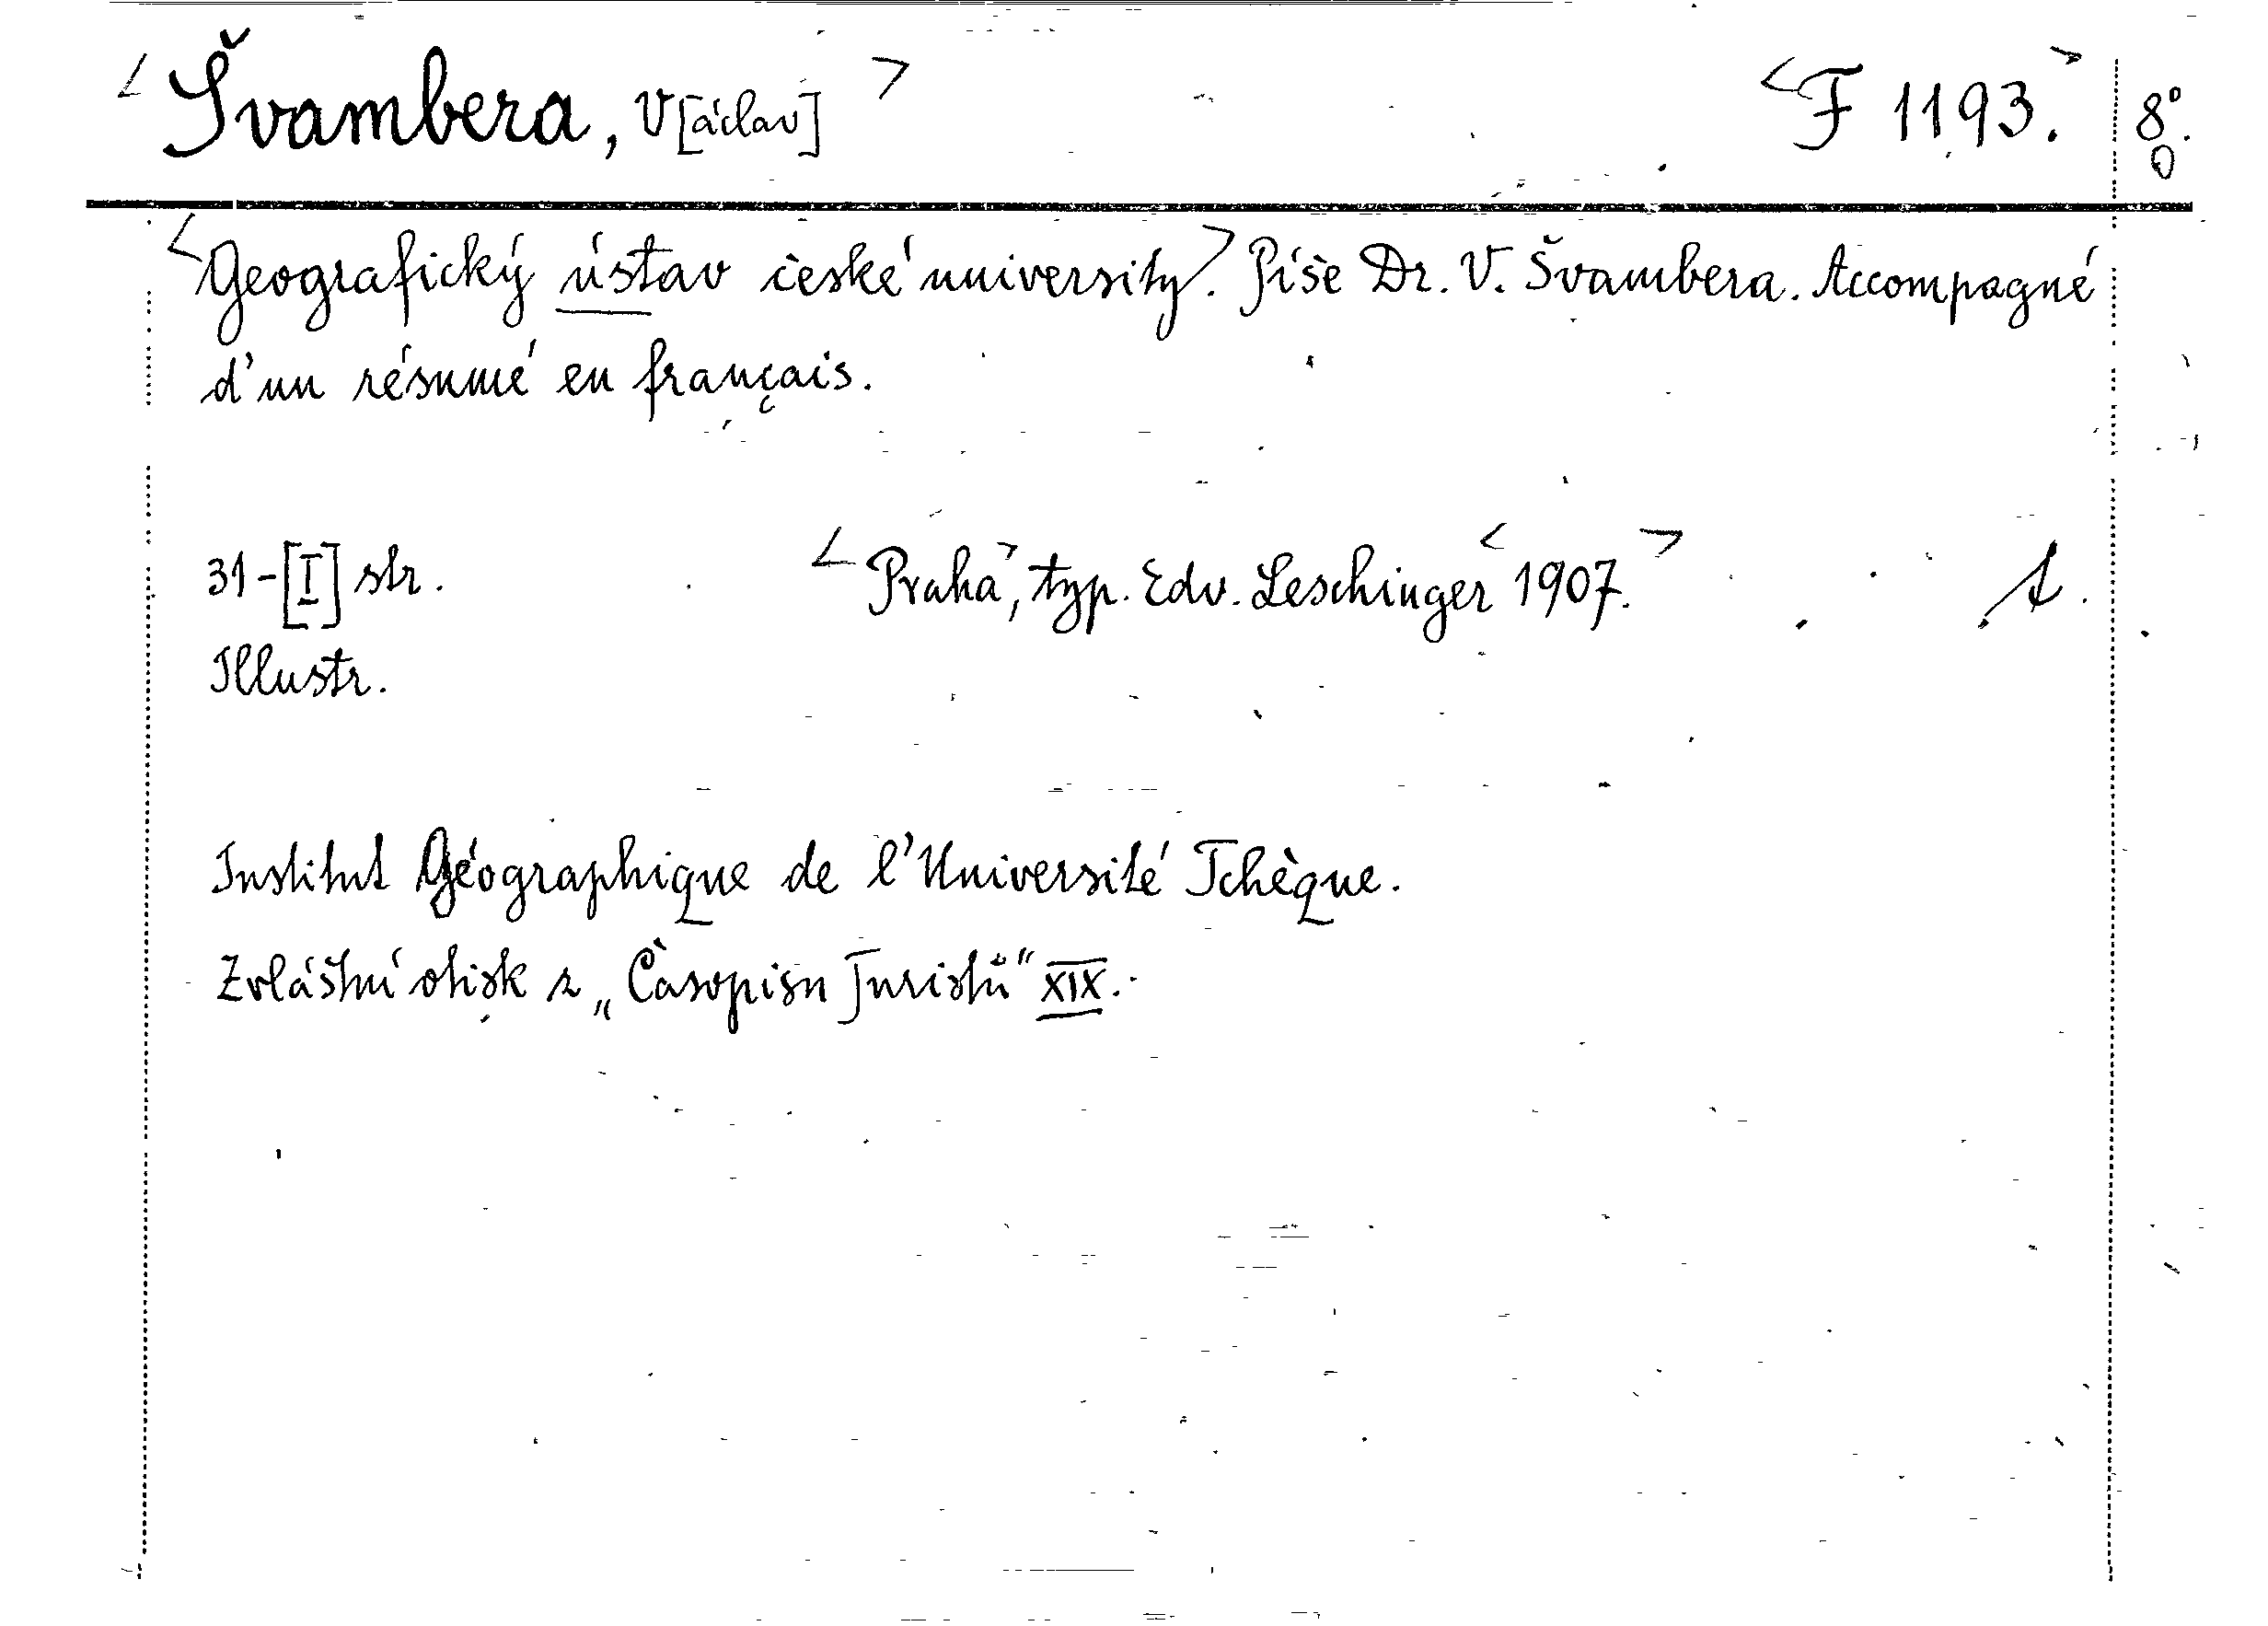 <Švambera, V[áclav]> <F 1193.> 8°.
<Geografický ústav české university.> Píše Dr. V. Švambera. Accompagné
d'un résumé en français.
31-[I] str. <Praha>, typ. Edv. Leschinger <1907.>
Illustr.
Institut Géographique de l'Université Tchèque.
Zvláštní otisk z „Časopisu Turistů" XIX.